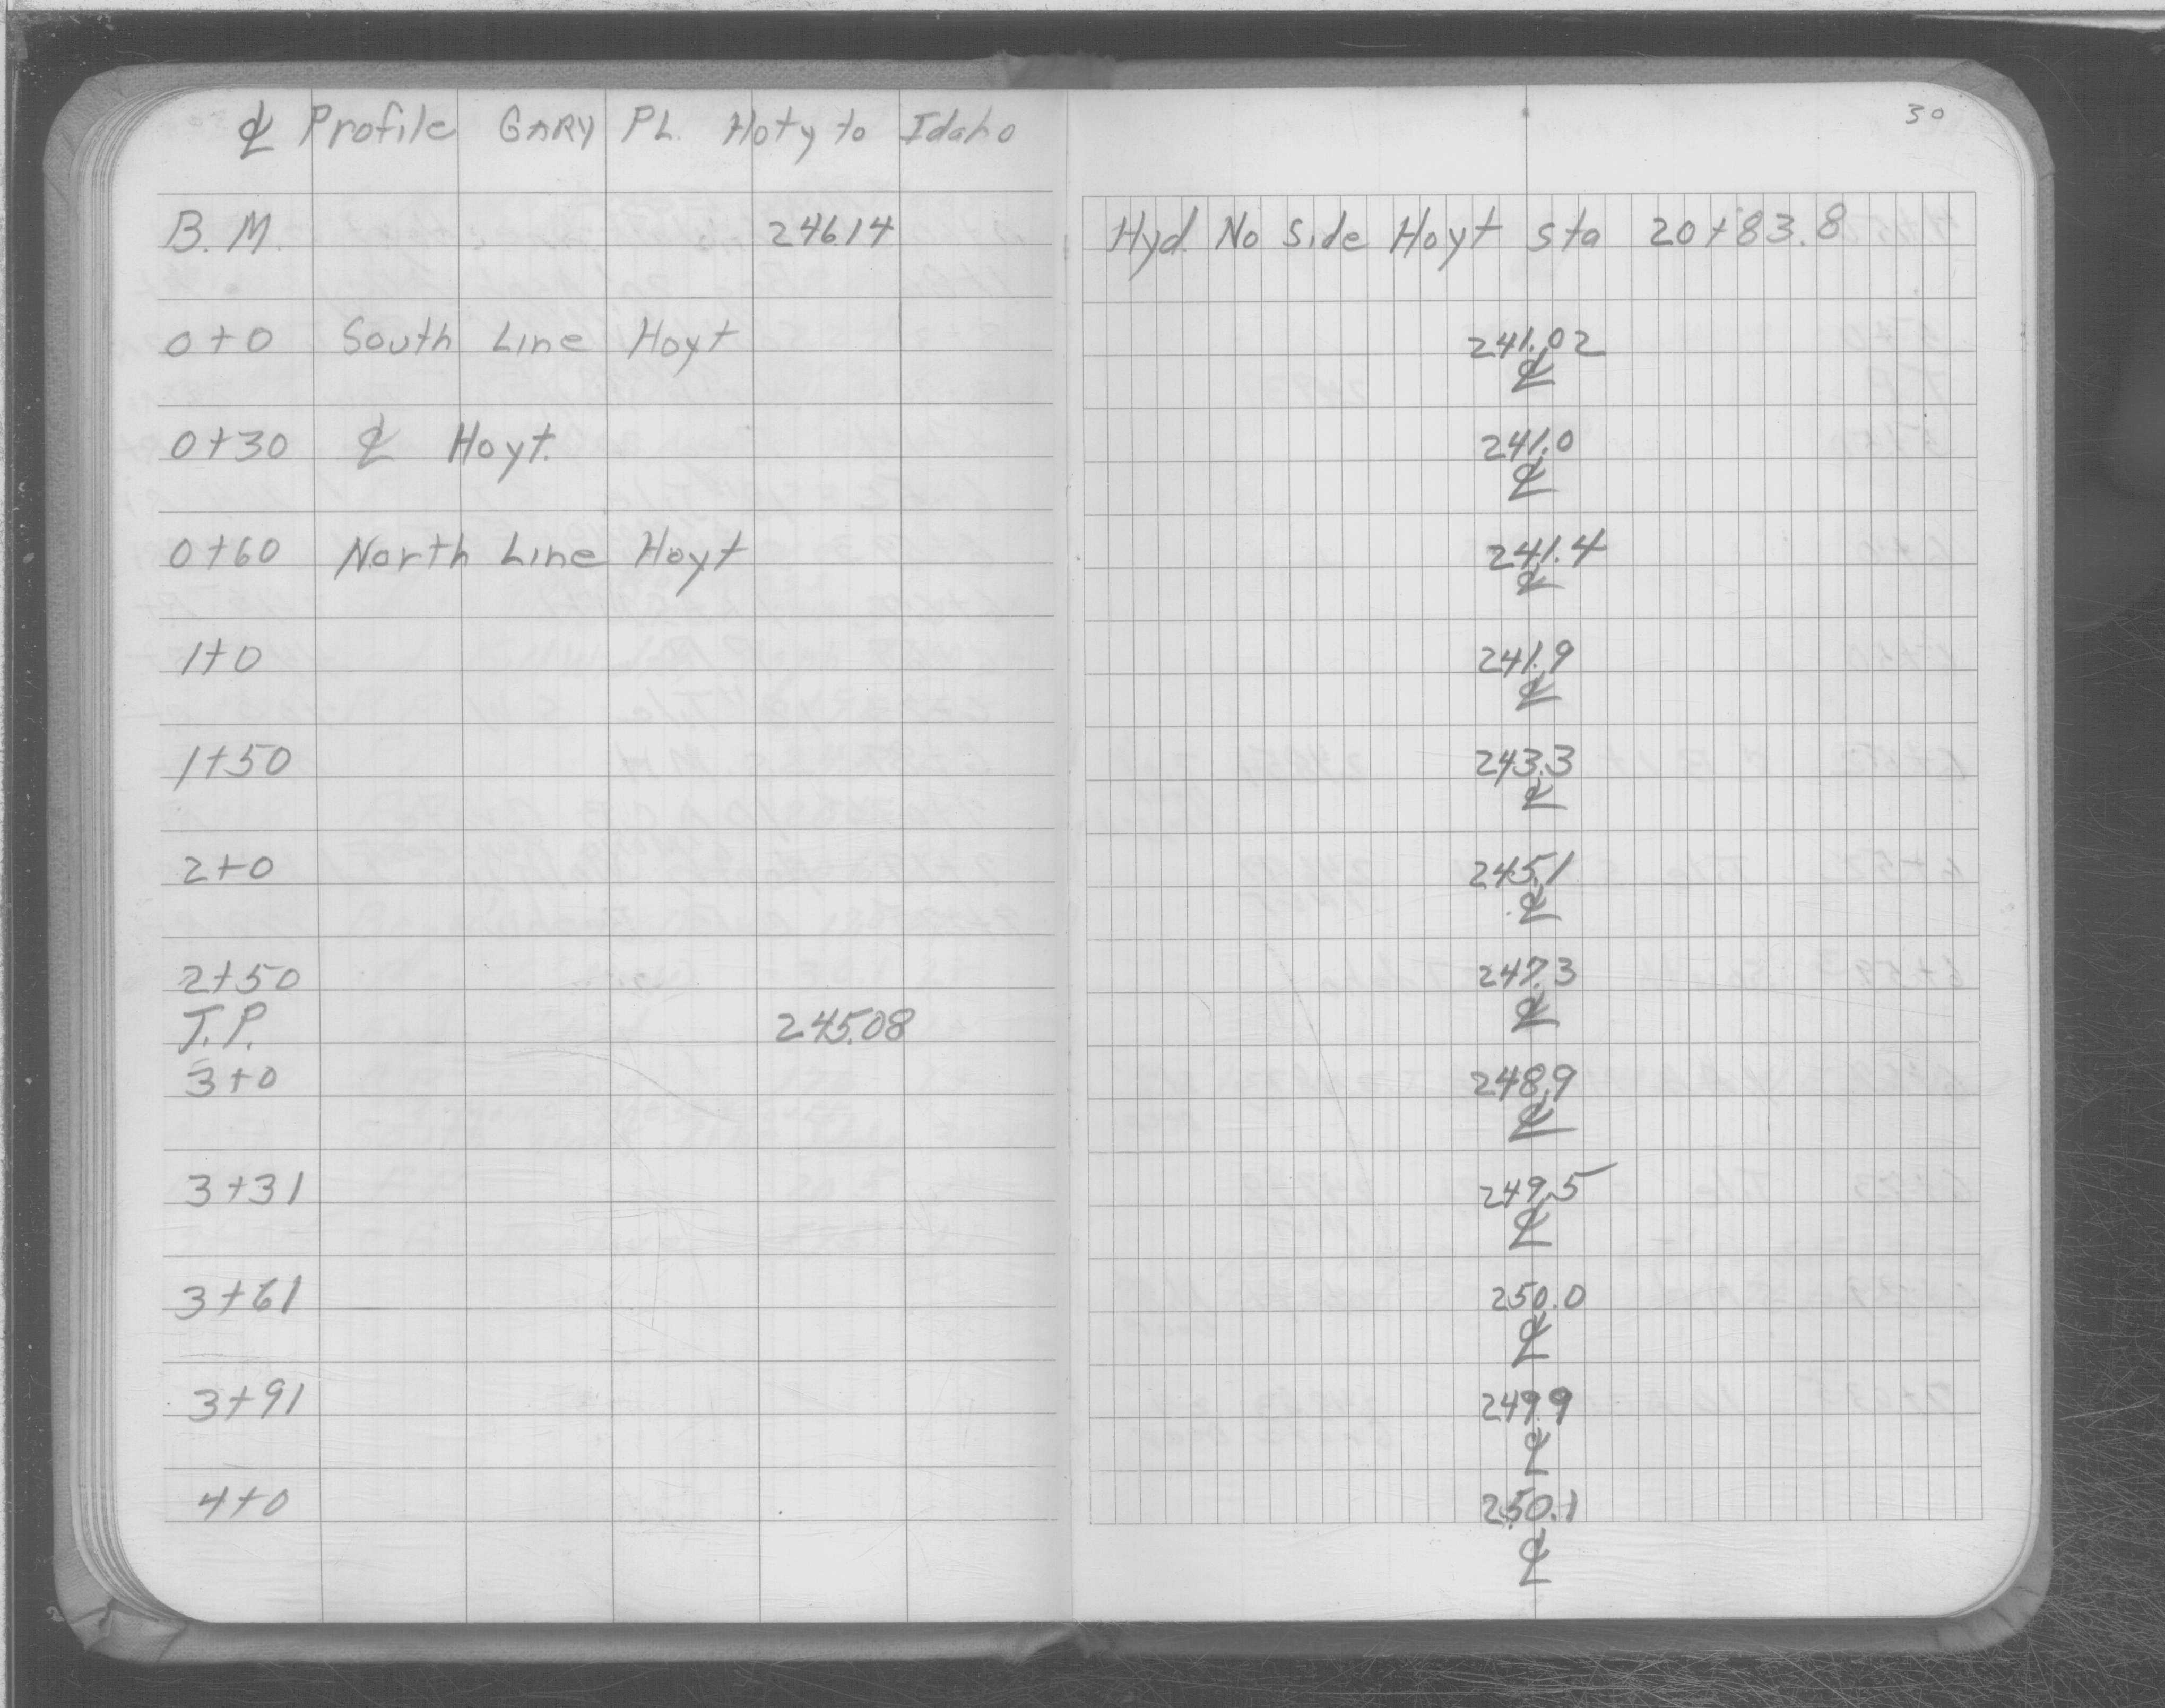 ℄ Profile GARY PL. Hoty to Idaho
30
B.M. 246.14 Hyd. No Side Hoyt sta 20+83.8
0+0 South Line Hoyt 241.02
℄
0+30 ℄ Hoyt. 241.0
℄
0+60 North Line Hoyt 241.4
℄
1+0 241.9
℄
1+50 243.3
℄
2+0 245.1
℄
2+50 247.3
℄
T.P. 245.08
3+0 248.9
℄
3+31 249.5
℄
3+61 250.0
℄
3+91 249.9
℄
4+0 250.1
℄